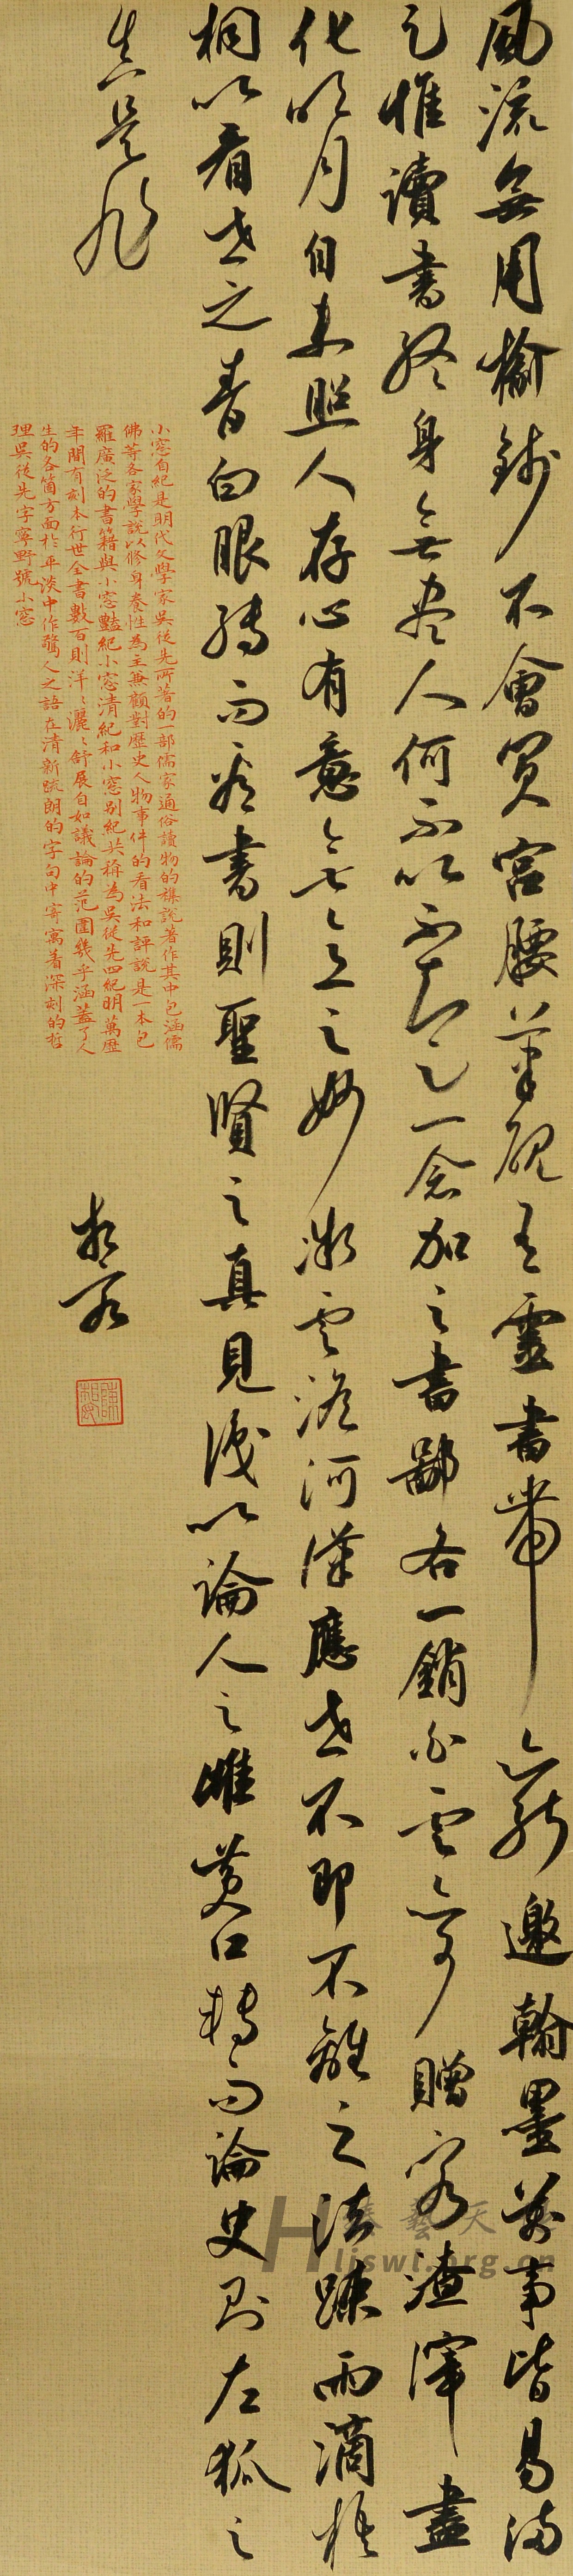 風流無用榆錢不會買宮腰筆硯有靈書帶亦能邀翰墨萬事皆易滿
足惟讀書終身無盡人何不以不知足一念加之書鄙吝一銷白雲亦可贈客渣滓盡
化明月自來照人存心有意無意之妙微雲澹河漢應世不即不離之法疎雨滴梧
桐以看世之青白眼轉而看書則聖賢之真見識以論人之雌黃口轉而論史則左狐之
真是非
小窓自紀是明代文學家吳從先所著的一部儒家通俗讀物的雜說著作其中包涵儒
佛等各家學說以修身養性為主兼顧對歷史人物事件的看法和評說是一本包
羅廣泛的書籍與小窓豔紀小窓清紀和小窓別紀共稱為吳從先四紀明萬歷
年間有刻本行世全書數百則洋洋灑灑舒展自如議論的范圍幾乎涵蓋了人
生的各箇方面於平淡中作驚人之語在清新疏朗的字句中寄寓着深刻的哲
理吳從先字寧野號小窓
liswl.org.cn